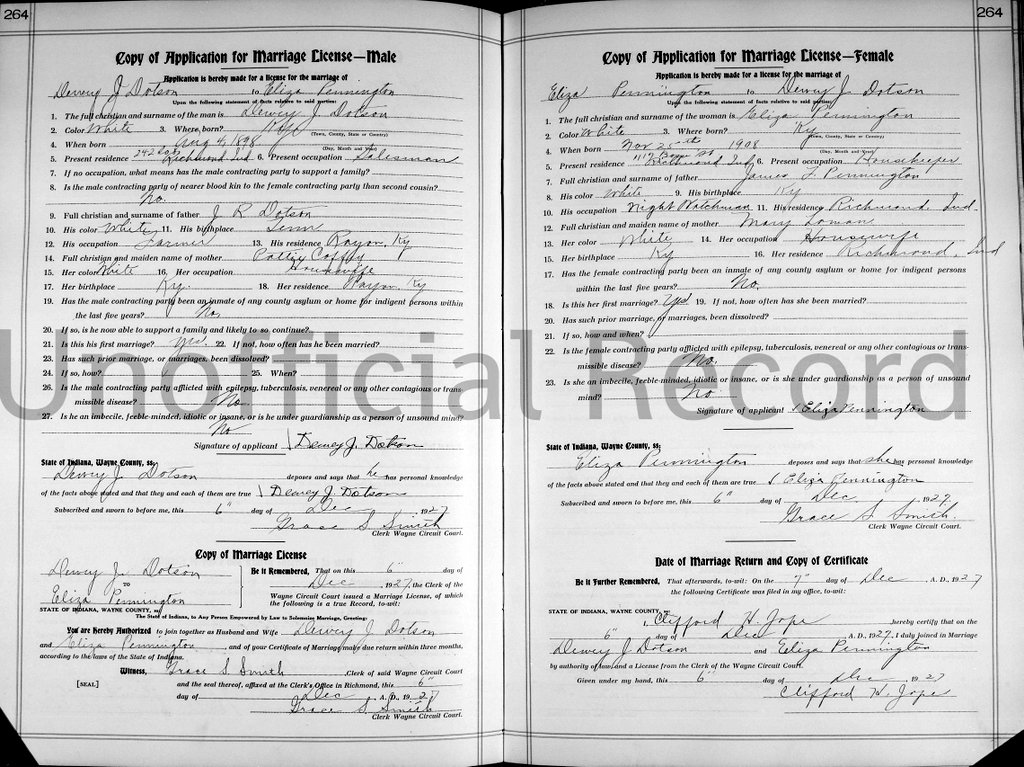 264
Copy of Application for Marriage License—Male
Application is hereby made for a license for the marriage of
Dewey J Dotson to Eliza Pennington
Upon the following statement of facts relative to said parties:
1. The full christian and surname of the man is Dewey J Dotson
2. Color White 3. Where born? Ky
(Town, County, State or Country)
4. When born Aug 4, 1898
(Day, Month and Year)
5. Present residence Richmond Ind 6. Present occupation Salesman
7. If no occupation, what means has the male contracting party to support a family?
8. Is the male contracting party of nearer blood kin to the female contracting party than second cousin?
No.
9. Full christian and surname of father J R Dotson
10. His color White 11. His birthplace Tenn
12. His occupation Farmer 13. His residence Ky
14. Full christian and maiden name of mother
15. Her color White 16. Her occupation Housewife
17. Her birthplace Ky. 18. Her residence Ky
19. Has the male contracting party been an inmate of any county asylum or home for indigent persons within
the last five years? No
20. If so, is he now able to support a family and likely to so continue?
21. Is this his first marriage? Yes 22. If not, how often has he been married?
23. Has such prior marriage, or marriages, been dissolved?
24. If so, how? 25. When?
26. Is the male contracting party afflicted with epilepsy, tuberculosis, venereal or any other contagious or trans-
missible disease? No
27. Is he an imbecile, feeble-minded, idiotic or insane, or is he under guardianship as a person of unsound mind?
No
Signature of applicant Dewey J. Dotson
State of Indiana, Wayne County, ss:
Dewey J Dotson deposes and says that he has personal knowledge
of the facts above stated and that they and each of them are true Dewey J Dotson
Subscribed and sworn to before me, this 6" day of Dec 1927
Grace S Smith
Clerk Wayne Circuit Court.
Copy of Marriage License
Dewey J. Dotson
TO
Eliza Pennington
Be it Remembered, That on this 6" day of
Dec, 1927, the Clerk of the
Wayne Circuit Court issued a Marriage License, of which
the following is a true Record, to-wit:
STATE OF INDIANA, WAYNE COUNTY, ss:
The State of Indiana, to Any Person Empowered by Law to Solemnize Marriage, Greeting:
You are Hereby Authorized to join together as Husband and Wife Dewey J Dotson
and Eliza Pennington, and of your Certificate of Marriage make due return within three months,
according to the laws of the State of Indiana.
Witness, Grace S. Smith, Clerk of said Wayne Circuit Court
[SEAL] and the seal thereof, affixed at the Clerk's Office in Richmond, this 6"
day of Dec A. D., 1927
Grace S Smith
Clerk Wayne Circuit Court.
264
Copy of Application for Marriage License—Female
Application is hereby made for a license for the marriage of
Eliza Pennington to Dewey J Dotson
Upon the following statement of facts relative to said parties:
1. The full christian and surname of the woman is Eliza Pennington
2. Color White 3. Where born? Ky
(Town, County, State or Country)
4. When born Nov 25th 1908
(Day, Month and Year)
5. Present residence Richmond Ind 6. Present occupation Housekeeper
7. Full christian and surname of father James L Pennington
8. His color White 9. His birthplace Ky
10. His occupation Night Watchman 11. His residence Richmond, Ind.
12. Full christian and maiden name of mother Mary Loman
13. Her color White 14. Her occupation Housewife
15. Her birthplace Ky 16. Her residence Richmond, Ind
17. Has the female contracting party been an inmate of any county asylum or home for indigent persons
within the last five years? No.
18. Is this her first marriage? Yes 19. If not, how often has she been married?
20. Has such prior marriage, or marriages, been dissolved?
21. If so, how and when?
22. Is the female contracting party afflicted with epilepsy, tuberculosis, venereal or any other contagious or trans-
missible disease? No.
23. Is she an imbecile, feeble-minded, idiotic or insane, or is she under guardianship as a person of unsound
mind? No
Signature of applicant Eliza Pennington
State of Indiana, Wayne County, ss:
Eliza Pennington deposes and says that she has personal knowledge
of the facts above stated and that they and each of them are true Eliza Pennington
Subscribed and sworn to before me, this 6" day of Dec, 1927.
Grace S Smith.
Clerk Wayne Circuit Court.
Date of Marriage Return and Copy of Certificate
Be it Further Remembered, That afterwards, to-wit: On the 7" day of Dec, A. D., 1927
the following Certificate was filed in my office, to-wit:
STATE OF INDIANA, WAYNE COUNTY, ss:
I, Clifford H. Jope, hereby certify that on the
6" day of Dec A. D., 1927, I duly joined in Marriage
Dewey J. Dotson and Eliza Pennington
by authority of law, and a License from the Clerk of the Wayne Circuit Court.
Given under my hand, this 6" day of Dec, 1927
Clifford H. Jope
Unofficial Record